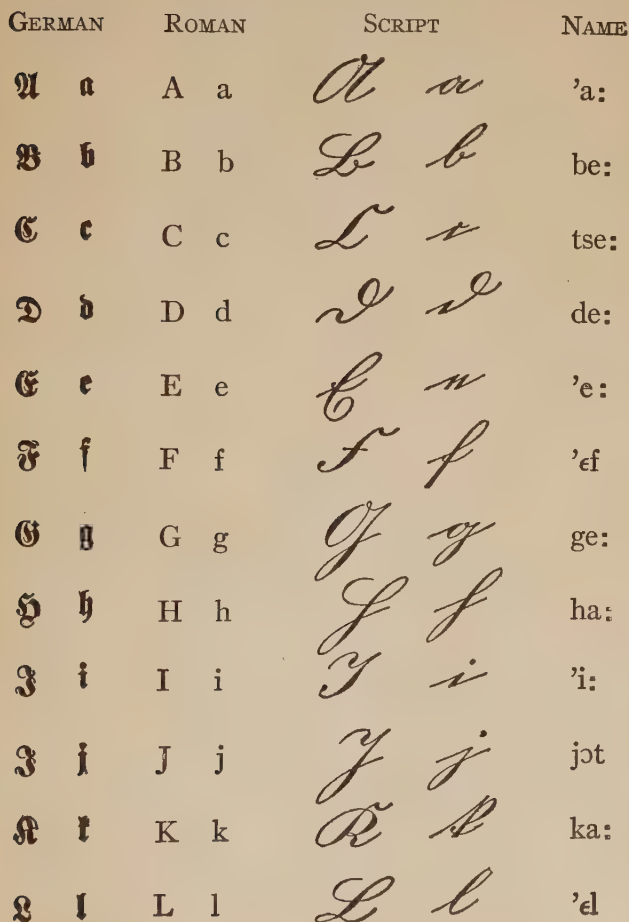 GERMAN ROMAN SCRIPT NAME
𝕬 𝖆 A a A a ’a:
𝕭 𝖇 B b B b be:
𝕮 𝖈 C c C c tse:
𝕯 𝖉 D d D d de:
𝕰 𝖊 E e E e ’e:
𝕱 𝖋 F f F f ’ɛf
𝕲 𝖌 G g G g ge:
𝕳 𝖍 H h H h ha:
𝕴 𝖎 I i I i ’i:
𝕵 𝖏 J j J j jɔt
𝕶 𝖐 K k K k ka:
𝕷 𝖑 L l L l ’ɛl